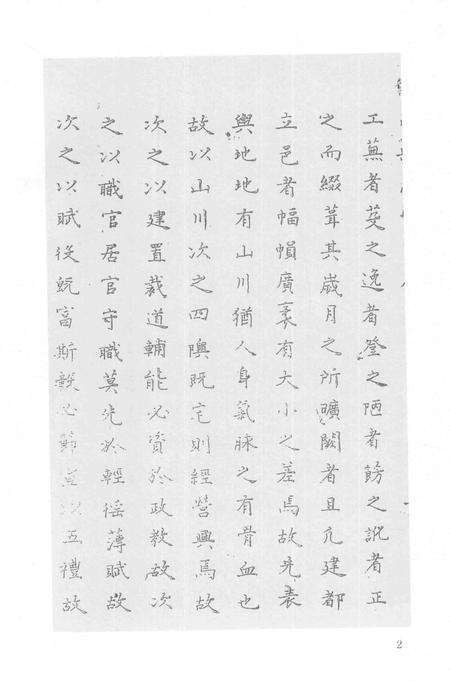 工蕪者芟之逸者登之陋者飭之訛者正
之而綴葺其歲月之所曠闕者且凡建都
立邑者幅幀廣袤有大小之差焉故先表
輿地地有山川猶人身氣脉之有骨血也
故以山川次之四隩既宅則經營興焉故
次之以建置裁道輔能必資於政教故次
之以職官居官守職莫先於輕徭薄賦故
次之以賦役既富斯穀必節以五禮故
2